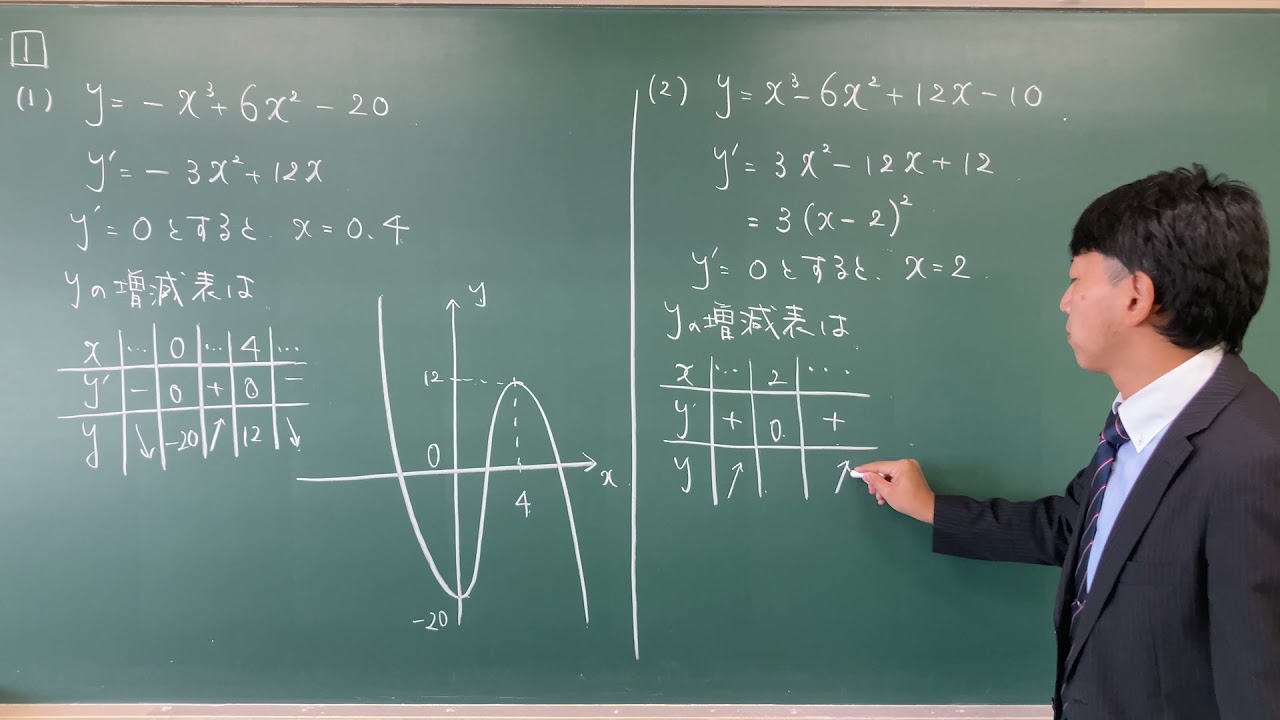 1
(1) y = - x³ + 6x² - 20
y' = - 3x² + 12x
y' = 0 とすると、 x = 0, 4
yの増減表は
x | … | 0 | … | 4 | …
y' | - | 0 | + | 0 | -
y | ↘ | -20 | ↗ | 12 | ↘
y
12
0
x
4
-20
(2) y = x³ - 6x² + 12x - 10
y' = 3x² - 12x + 12
= 3(x - 2)²
y' = 0 とすると、 x = 2
yの増減表は
x | … | 2 | ….
y' | + | 0 | +
y | ↗ | | ↗